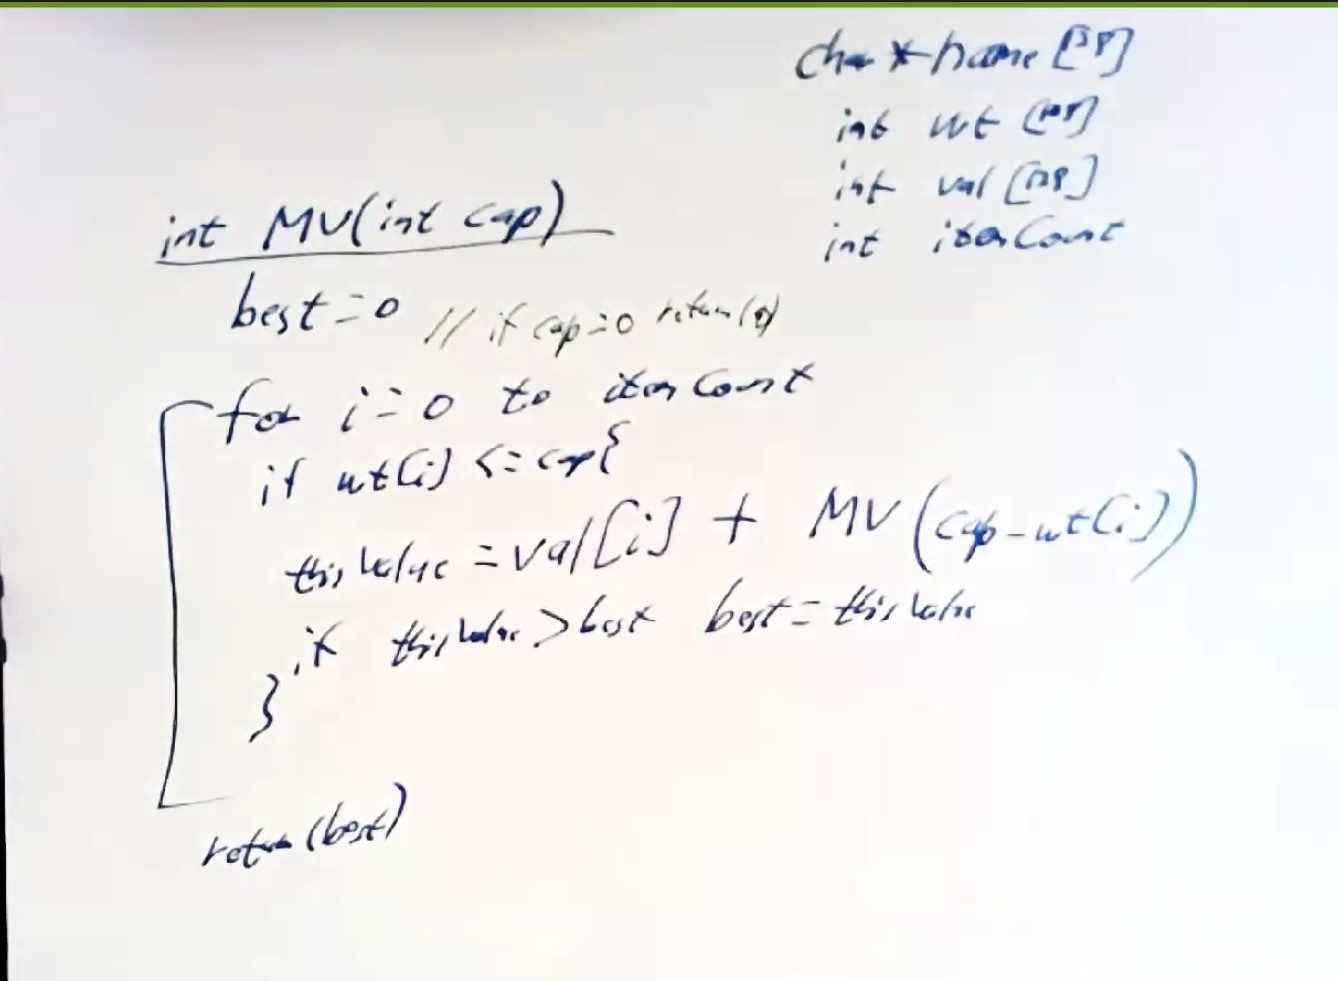 char *name[128]
int wt[128]
int val[128]
int itemCount
int MV(int cap)
best=0 // if cap=0 return(0)
for i=0 to itemCount
if wt[i] <= cap{
thisValue = val[i] + MV(cap-wt[i])
if thisValue > best best = thisValue
}
return(best)